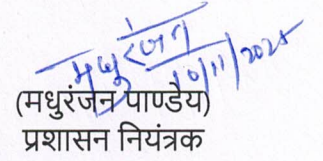 मधुरंजन
10/11/2025
(मधुरंजन पाण्डेय)
प्रशासन नियंत्रक